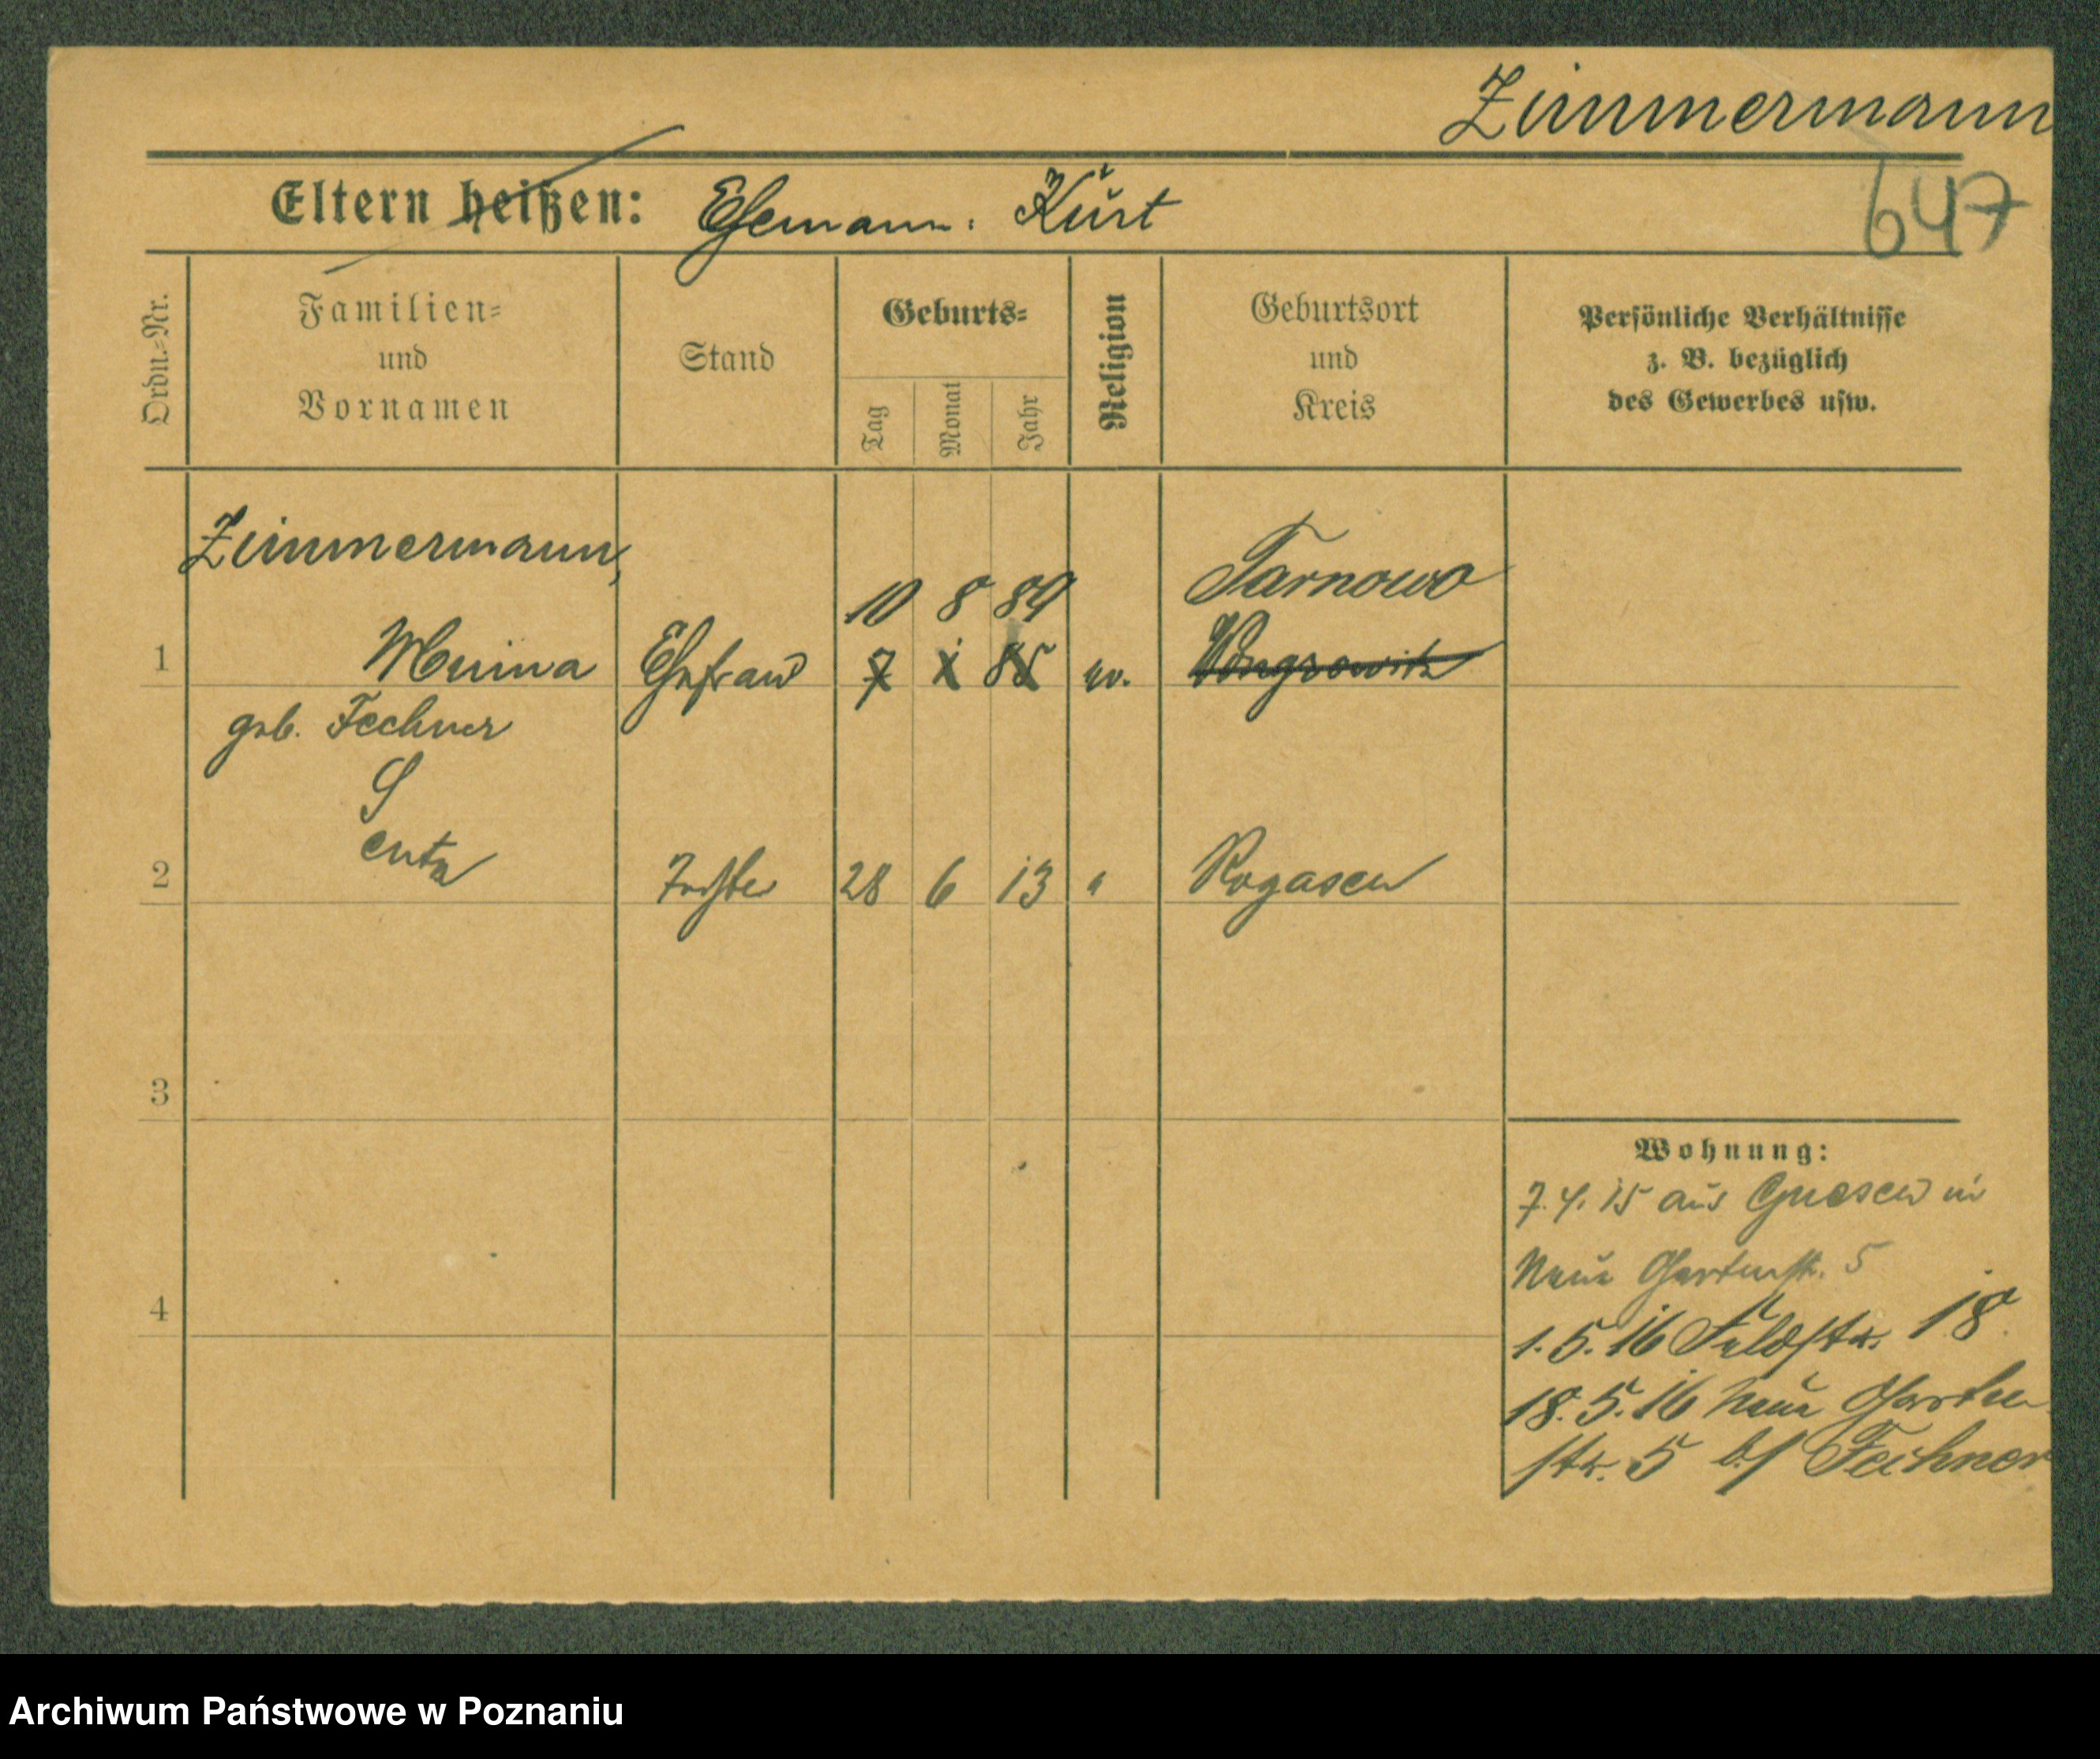 Zimmermann
647
Eltern heißen: Ehemann: Kurt
Ordn.=Nr.
Familien=
und
Vornamen
Stand
Geburts=
Tag
Monat
Jahr
Religion
Geburtsort
und
Kreis
Persönliche Verhältnisse
z. B. bezüglich
des Gewerbes usw.
Zimmermann,
10 8 89 Tarnowo
1 Ehefrau 7 X 85 ev. Wongrowitz
geb. Fechner
S
enta
2 Tochter 28 6 13 " Rogasen
3
4
Wohnung:
7.4.15 aus Gnesen in
Neue Gartenstr. 5
1.5.16 Feldstr. 18.
18.5.16 Neue Garten
str. 5 b/ Fechner
Archiwum Państwowe w Poznaniu